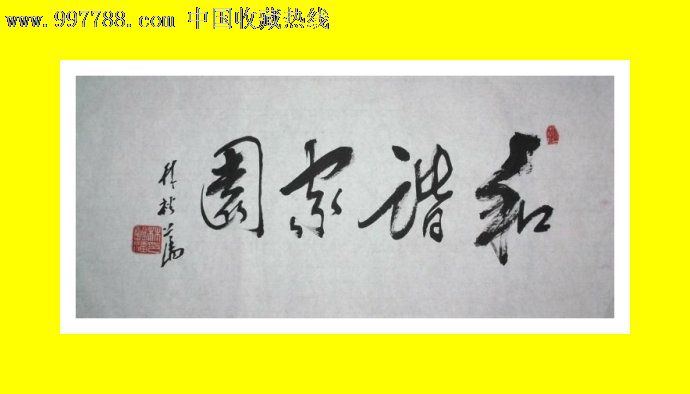 www.997788.com 中国收藏热线
和谐家園